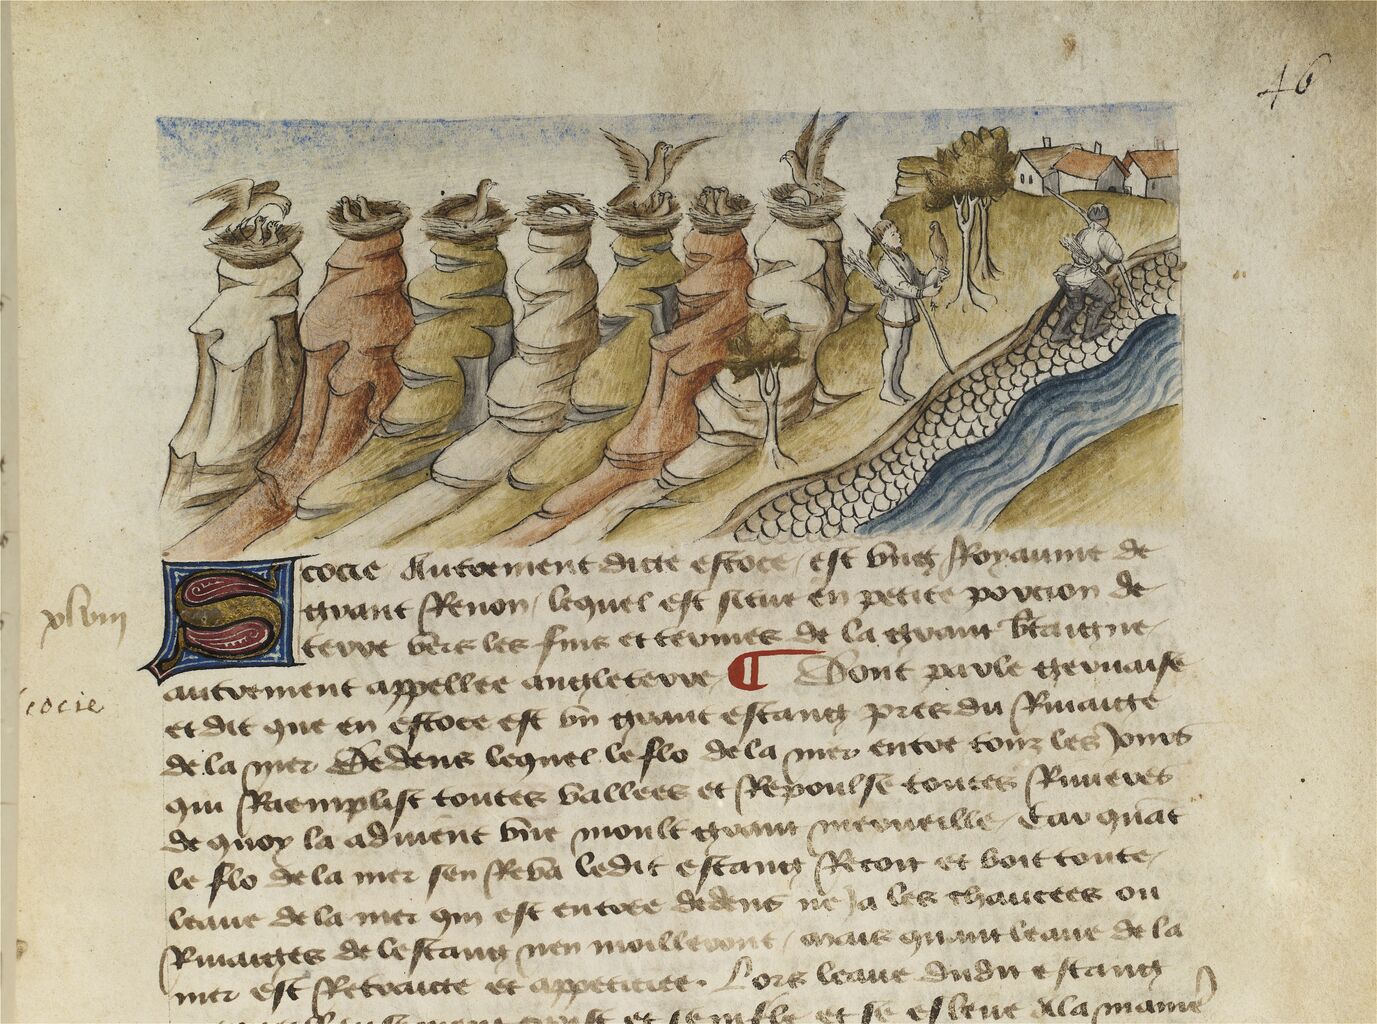 46
Scocie Autrement dicte escoce / est vng Royaume de
grant Renon / lequel est situe en petite porcion de
terre vers les fins et termes de la grant bretaigne /
xlviii
autrement appellee angleterre ¶ Dont parle geruaise
scocie
et dit que en escoce est vn grant estang pres du Riuaige
de la mer Dedens lequel le flo de la mer entre touz les Jours
qui Raemplist toutes vallees et Repoulse toutes Riuieres
de quoy la aduient vne moult grant merueille / Car quant
le flo de la mer sen Reva ledit estang Recoit et boit toute /
leaue de la mer qui est entree dedens ne Ja les chaucees ou
Riuaiges de lestang nen moilleront / mais quant leaue de la
mer est Retraicte et appeticee. Lors leaue dudit estang
et se enfle et se eslieue a la maniere